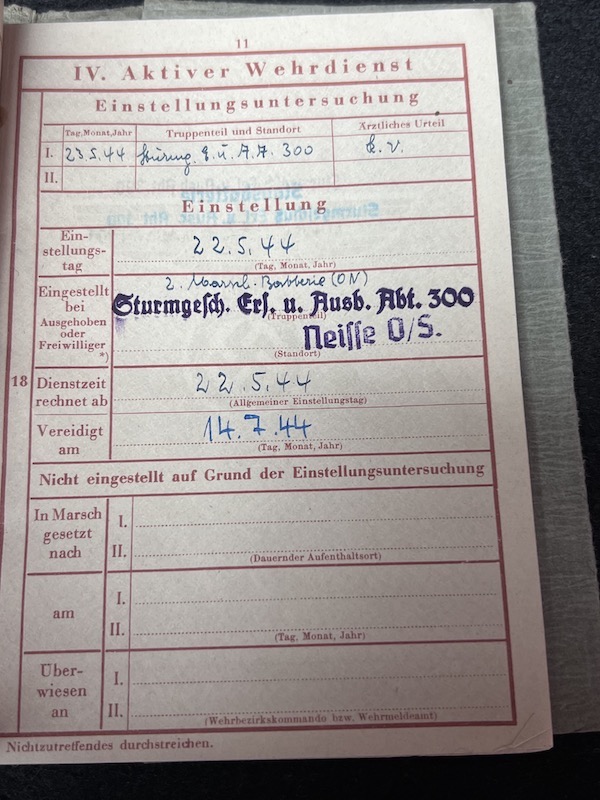 11
IV. Aktiver Wehrdienst
Einstellungsuntersuchung
Tag, Monat, Jahr Truppenteil und Standort Ärztliches Urteil
I. 23.5.44 E. u. A. A. 300 k. v.
II.
Einstellung
Ein-
stellungs-
tag
22.5.44
(Tag, Monat, Jahr)
Eingestellt
bei
Ausgehoben
oder
Freiwilliger
*)
2. Batterie (ON)
Sturmgesch. Ers. u. Ausb. Abt. 300
(Truppenteil)
Neisse O/S.
(Standort)
18
Dienstzeit
rechnet ab
22.5.44
(Allgemeiner Einstellungstag)
Vereidigt
am
14.7.44
(Tag, Monat, Jahr)
Nicht eingestellt auf Grund der Einstellungsuntersuchung
In Marsch
gesetzt
nach
I.
II.
(Dauernder Aufenthaltsort)
am
I.
II.
(Tag, Monat, Jahr)
Über-
wiesen
an
I.
II.
(Wehrbezirkskommando bzw. Wehrmeldeamt)
Nichtzutreffendes durchstreichen.